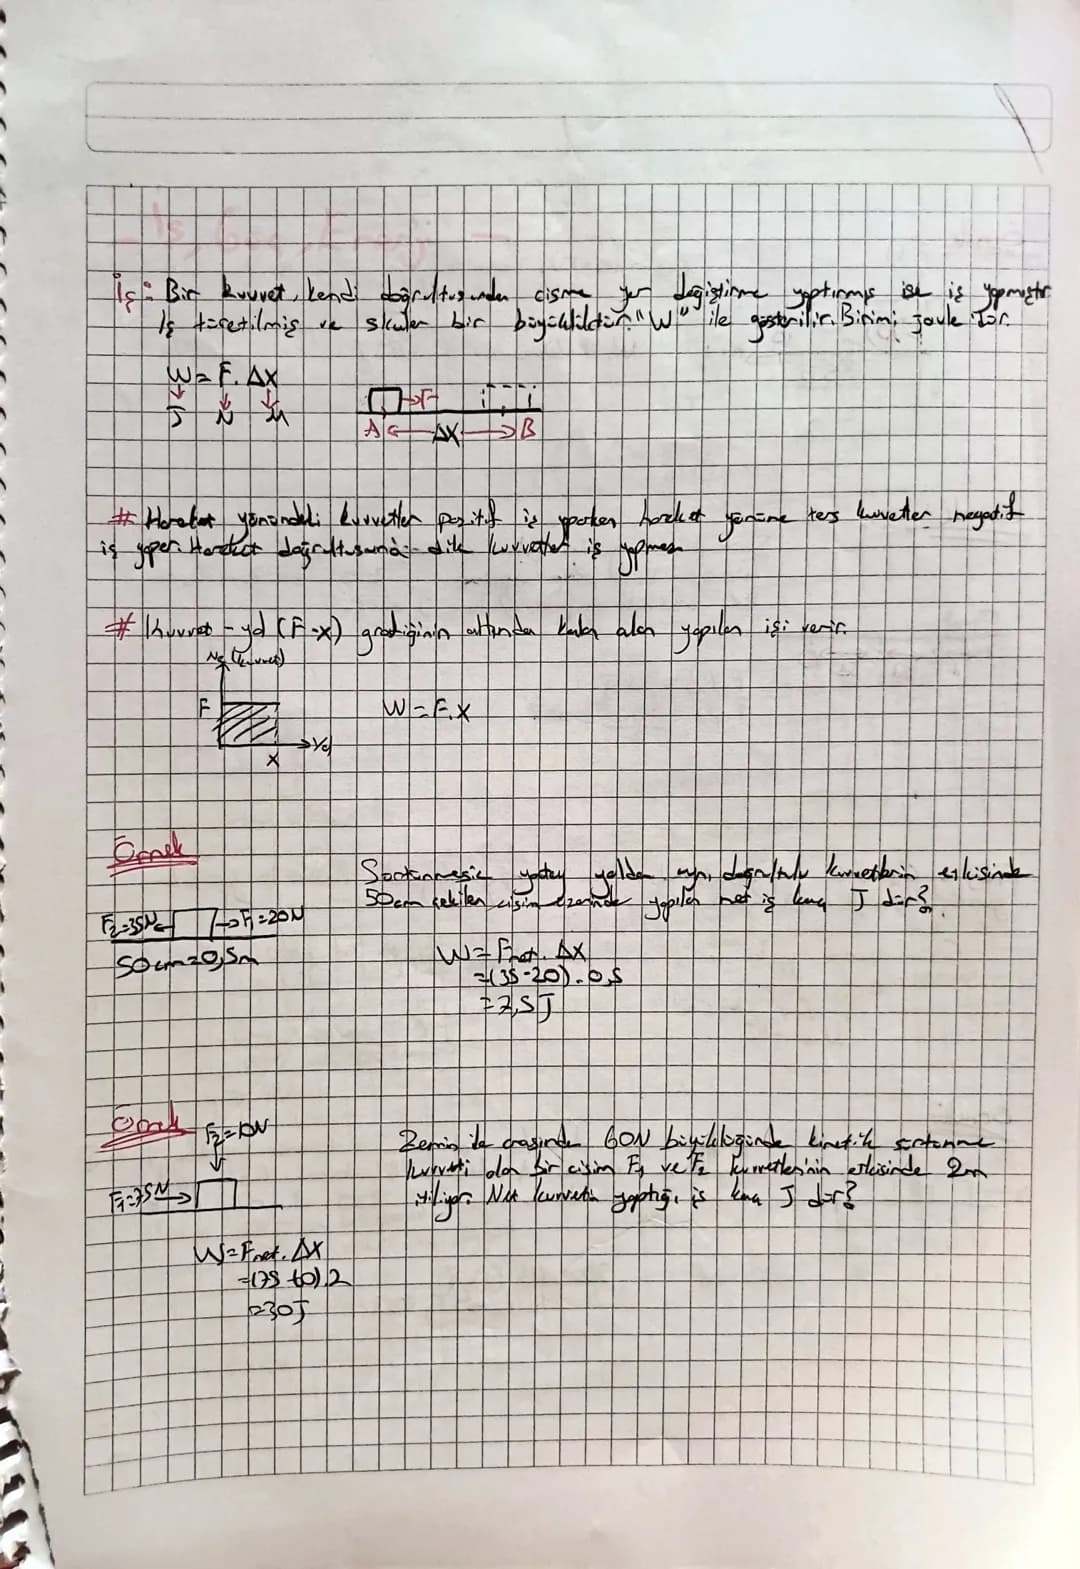 İş, Güç, Enerji
İş: Bir kuvvet, kendi doğrultusundan cisme yer değiştirme yaptırmış ise iş yapmıştır
İş türetilmiş ve skaler bir büyüklüktür. "W" ile gösterilir. Birimi joule Jdür.
W = F. ΔX
J N M
F
A ΔX B
# Hareket yönündeki kuvvetler pozitif iş yaparken hareket yönüne ters kuvvetler negatif
iş yapar. Hareket doğrultusuna dik kuvvetler iş yapmaz
# Kuvvet - yol (F-x) grafiğinin altında kalan alan yapılan işi verir.
(kuvvet)
F
W = F.X
Yol
X
Örnek
Sürtünmesiz yatay yolda aynı doğrultulu kuvvetlerin etkisinde
50 cm çekilen cisim üzerinde yapılan net iş kaç J dür?
F2=35N F1=20N
50 cm=0,5m
W = Fnet. ΔX
=(35-20).0,5
=7,5J
Örnek
F2=10N
Zemin ile arasında 60N büyüklüğünde kinetik sürtünme
kuvveti olan bir cisim F1 ve F2 kuvvetlerinin etkisinde 2m
itiliyor. Net kuvvetin yaptığı iş kaç J dür?
F1=75N
W=Fnet. ΔX
=(75-60).2
=30J